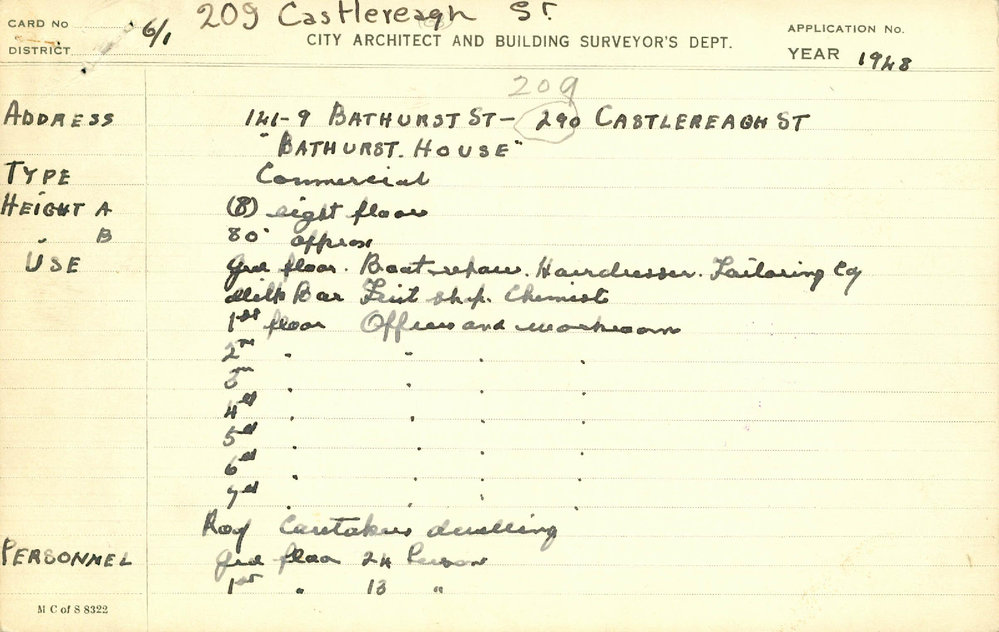 209 Castlereagh St.
CARD No 6/1
CITY ARCHITECT AND BUILDING SURVEYOR'S DEPT.
APPLICATION No.
DISTRICT
YEAR 1948
209
ADDRESS 141-9 BATHURST ST - 290 CASTLEREAGH ST
"BATHURST. HOUSE"
TYPE Commercial
HEIGHT A (8) eight floors
" B 80' approx
USE Grd floor. Boot repairs. Hairdresser. Tailoring Co
Milk Bar Fruit shop. Chemist
1st floor Offices and workrooms
2nd " " " "
3rd " " " "
4th " " " "
5th " " " "
6th " " " "
7th " " " "
Roof Caretakers dwelling
PERSONNEL Grd floor 24 Person
1st " 13 "
M C of S 8322